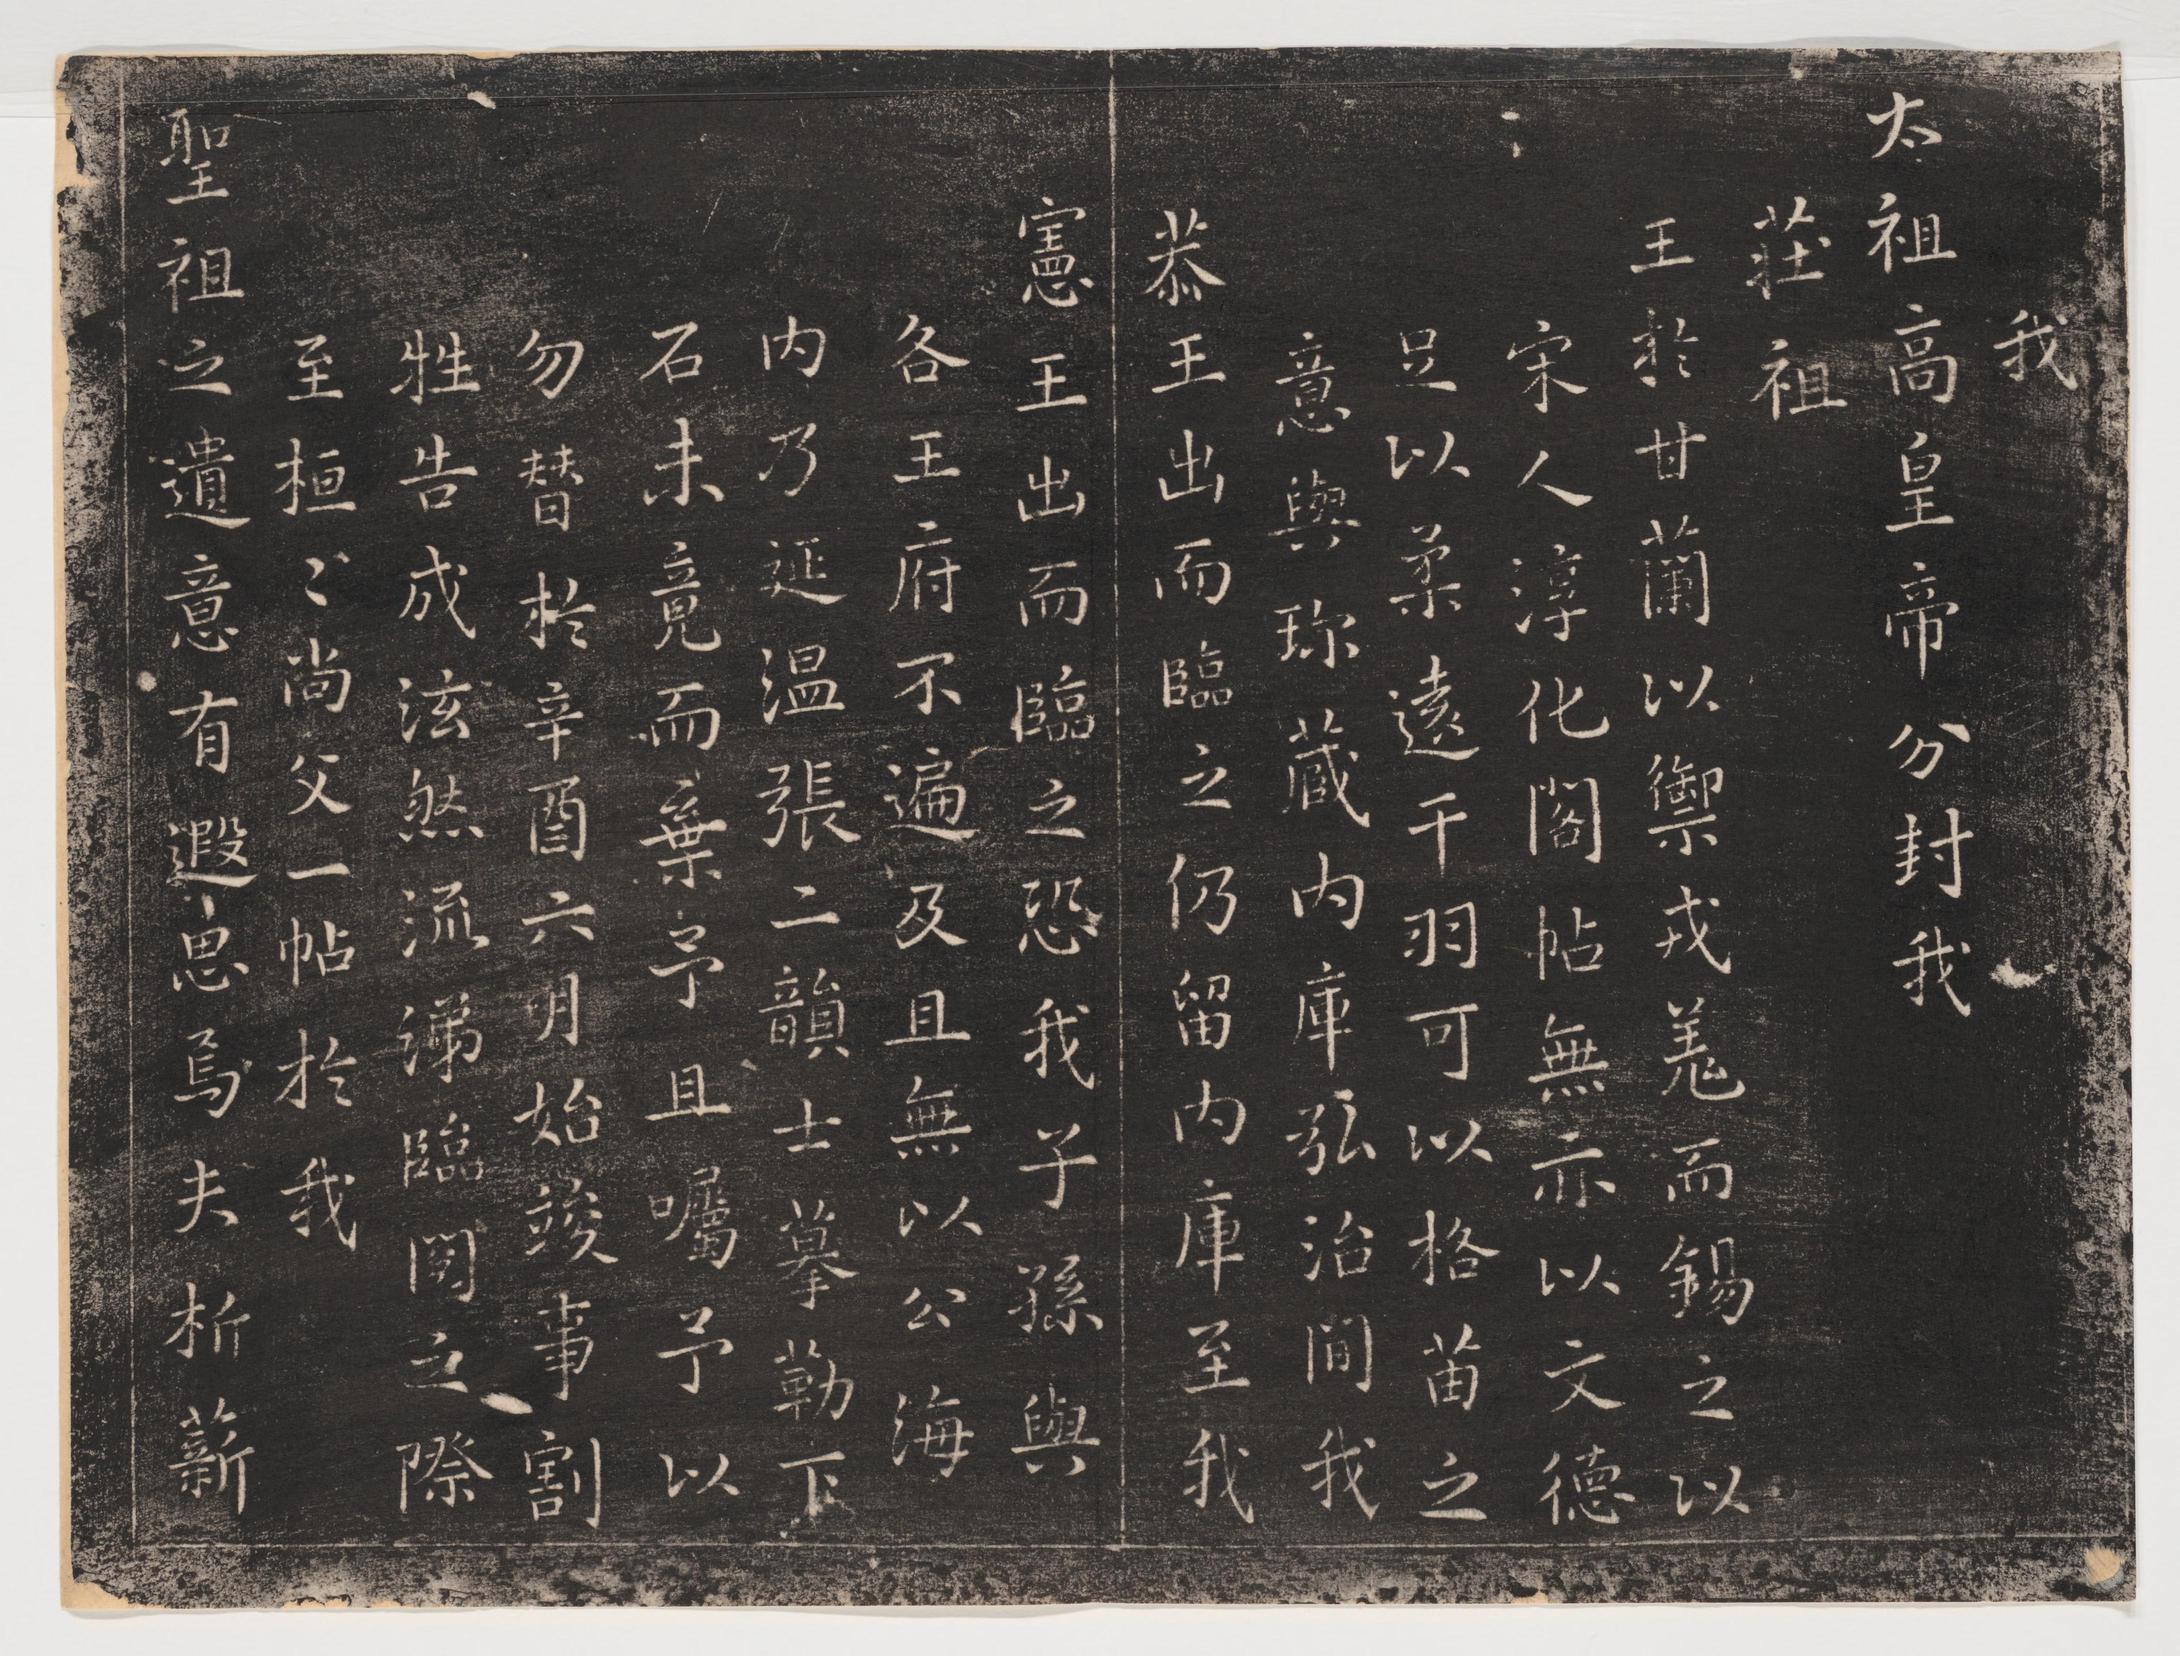 我
太祖高皇帝分封我
莊祖
王於甘蘭以禦戎羗而錫之以
宋人淳化閣帖無亦以文德
足以柔遠干羽可以格苗之
意與珎藏内庫弘治間我
恭王出而臨之仍留内庫至我
憲王出而臨之恐我子孫與
各王府不遍及且無以公海
内乃延温張二韻士摹勒下
石未竟而棄予且囑予以
勿替於辛酉六月始竣事割
牲告成泫然流涕臨閲之際
至桓〻尚父一帖於我
聖祖之遺意有遐思焉夫析薪